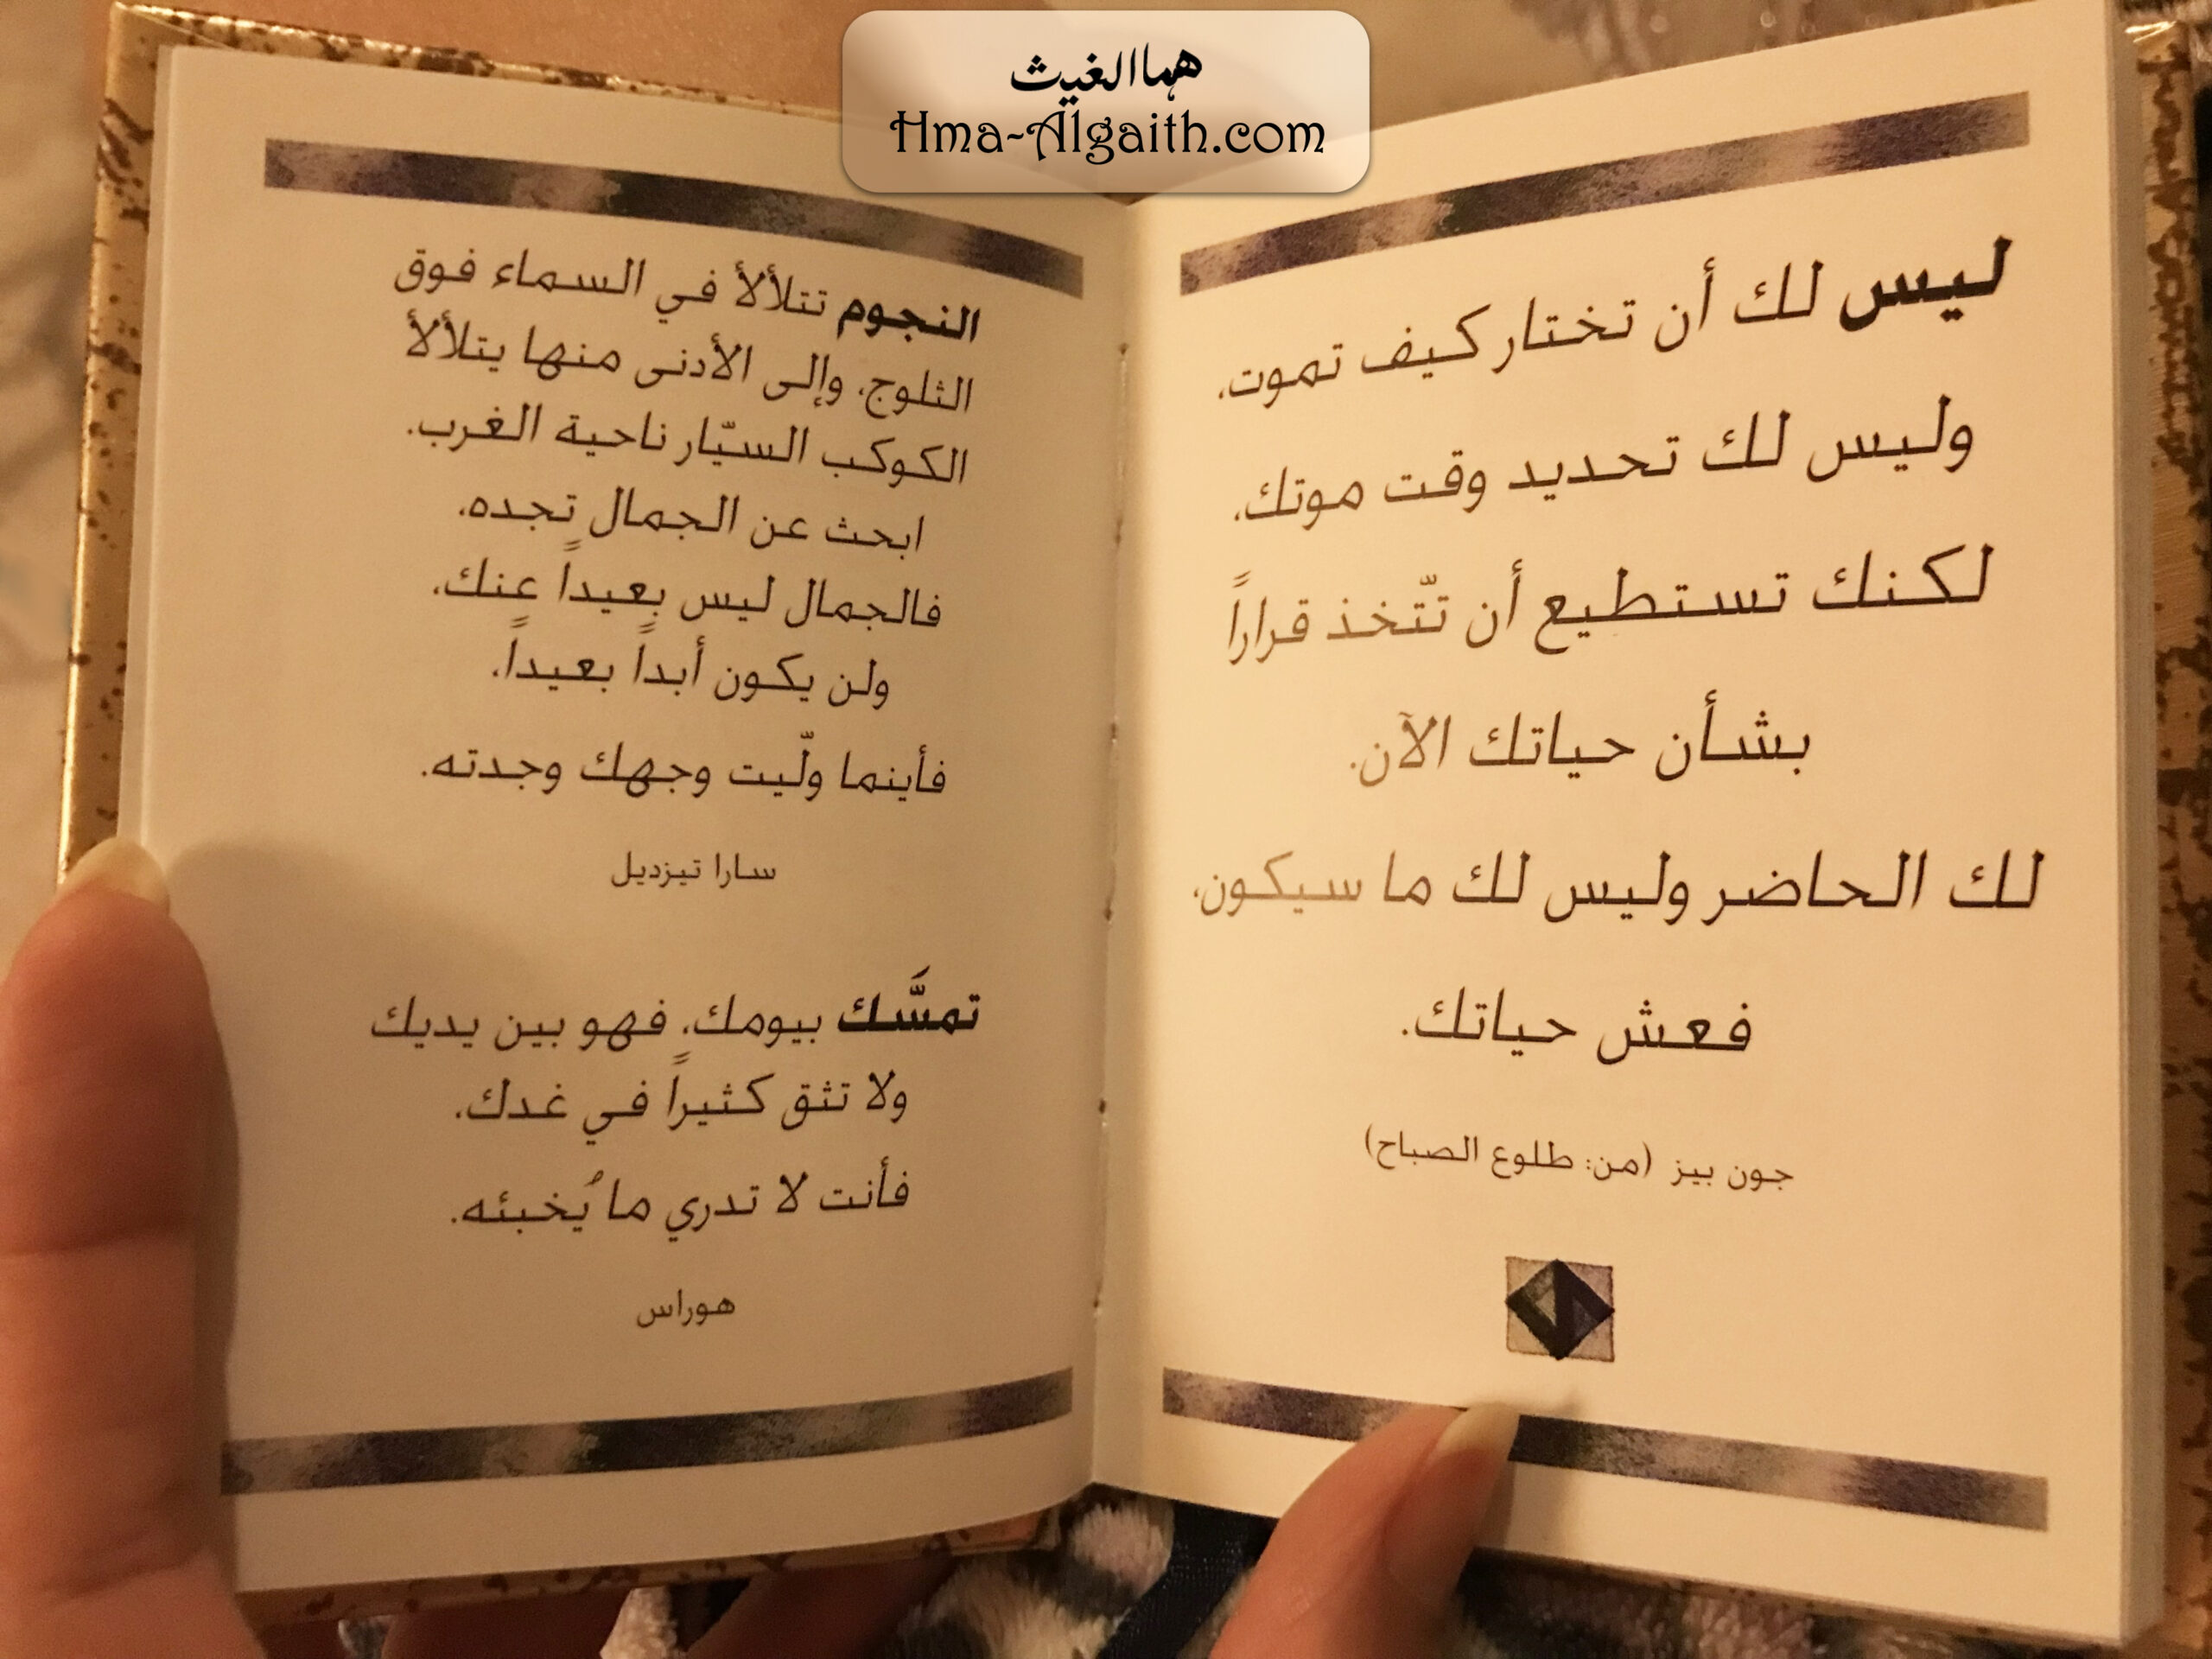 هما الغيث
Hma-Algaith.com
ليس لك أن تختار كيف تموت،
وليس لك تحديد وقت موتك،
لكنك تستطيع أن تتّخذ قراراً
بشأن حياتك الآن.
لك الحاضر وليس لك ما سيكون،
فعش حياتك.
جون بيز (من: طلوع الصباح)
النجوم تتلألأ في السماء فوق
الثلوج، وإلى الأدنى منها يتلألأ
الكوكب السيّار ناحية الغرب.
ابحث عن الجمال تجده،
فالجمال ليس بعيداً عنك،
ولن يكون أبداً بعيداً،
فأينما ولّيت وجهك وجدته.
سارا تيزديل
تمسَّك بيومك، فهو بين يديك
ولا تثق كثيراً في غدك،
فأنت لا تدري ما يُخبئه.
هوراس